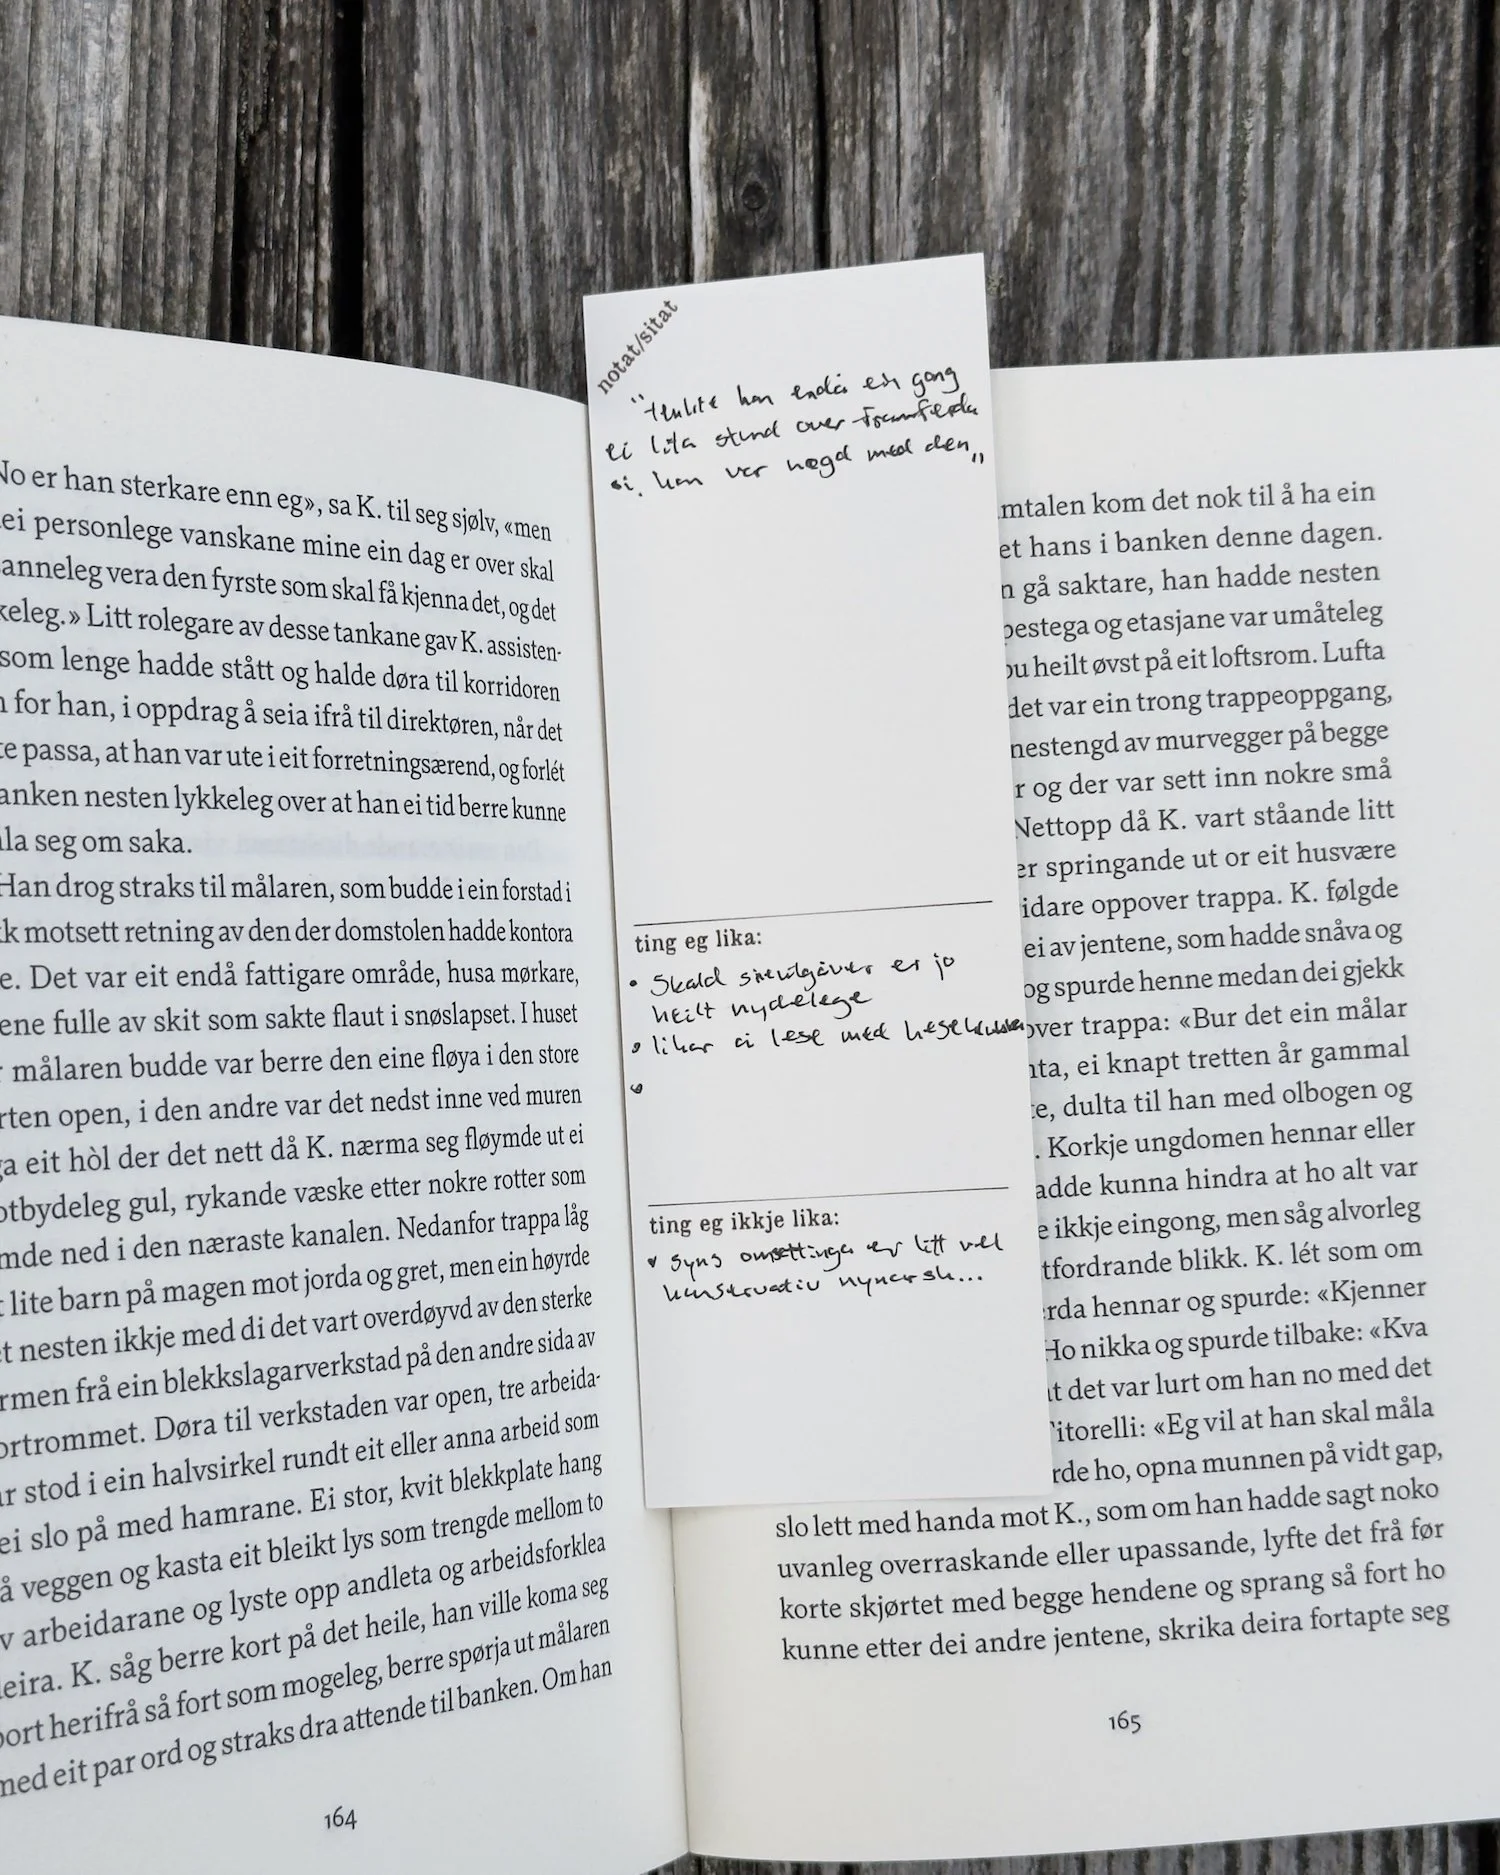 No er han sterkare enn eg», sa K. til seg sjølv, «men
ei personlege vanskane mine ein dag er over skal
anneleg vera den fyrste som skal få kjenna det, og det
keleg.» Litt rolegare av desse tankane gav K. assisten-
som lenge hadde stått og halde døra til korridoren
for han, i oppdrag å seia ifrå til direktøren, når det
te passa, at han var ute i eit forretningsærend, og forlét
anken nesten lykkeleg over at han ei tid berre kunne
la seg om saka.
Han drog straks til målaren, som budde i ein forstad i
k motsett retning av den der domstolen hadde kontora
e. Det var eit endå fattigare område, husa mørkare,
ene fulle av skit som sakte flaut i snøslapset. I huset
målaren budde var berre den eine fløya i den store
rten open, i den andre var det nedst inne ved muren
ga eit hòl der det nett då K. nærma seg fløymde ut ei
otbydeleg gul, rykande væske etter nokre rotter som
mde ned i den næraste kanalen. Nedanfor trappa låg
t lite barn på magen mot jorda og gret, men ein høyrde
et nesten ikkje med di det vart overdøyvd av den sterke
rmen frå ein blekkslagarverkstad på den andre sida av
ortrommet. Døra til verkstaden var open, tre arbeida-
ar stod i ein halvsirkel rundt eit eller anna arbeid som
ei slo på med hamrane. Ei stor, kvit blekkplate hang
å veggen og kasta eit bleikt lys som trengde mellom to
v arbeidarane og lyste opp andleta og arbeidsforklea
eira. K. såg berre kort på det heile, han ville koma seg
bort herifrå så fort som mogeleg, berre spørja ut målaren
med eit par ord og straks dra attende til banken. Om han
164
notat/sitat
"tenkte han endå ein gong
ei lita stund over framferda
si. han var nøgd med den"
ting eg lika:
• Skald sine utgåver er jo
heilt nydelege
• likar ei lese med
•
ting eg ikkje lika:
• syns omsettinga er litt vel
konservativ nynorsk...
mtalen kom det nok til å ha ein
et hans i banken denne dagen.
n gå saktare, han hadde nesten
pestega og etasjane var umåteleg
bu heilt øvst på eit loftsrom. Lufta
det var ein trong trappeoppgang,
nestengd av murvegger på begge
r og der var sett inn nokre små
Nettopp då K. vart ståande litt
er springande ut or eit husvære
idare oppover trappa. K. følgde
ei av jentene, som hadde snåva og
og spurde henne medan dei gjekk
over trappa: «Bur det ein målar
nta, ei knapt tretten år gammal
te, dulta til han med olbogen og
. Korkje ungdomen hennar eller
adde kunna hindra at ho alt var
e ikkje eingong, men såg alvorleg
tfordrande blikk. K. lét som om
rda hennar og spurde: «Kjenner
Ho nikka og spurde tilbake: «Kva
at det var lurt om han no med det
Titorelli: «Eg vil at han skal måla
rde ho, opna munnen på vidt gap,
slo lett med handa mot K., som om han hadde sagt noko
uvanleg overraskande eller upassande, lyfte det frå før
korte skjørtet med begge hendene og sprang så fort ho
kunne etter dei andre jentene, skrika deira fortapte seg
165